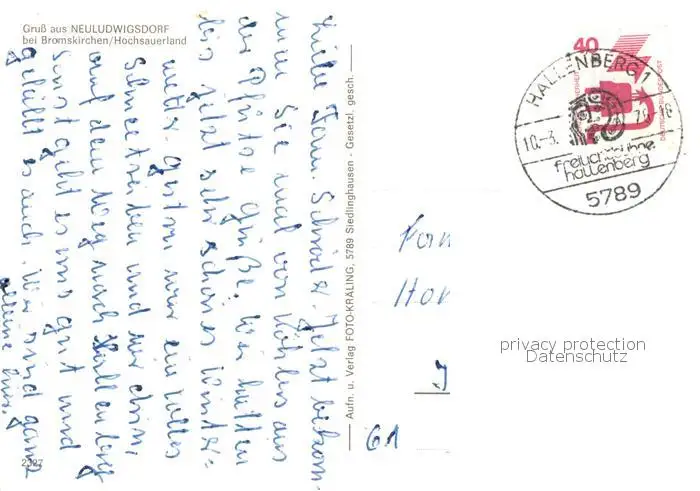 Gruß aus NEULUDWIGSDORF
bei Bromskirchen/Hochsauerland
Liebe Fam. Schröder. Jetzt bekom
men Sie mal von Köhlers aus
der Pfütze Grüße. Wir hatten
bis jetzt sehr schönes Winter=
wetter. Gestern war ein tolles
Schneetreiben und wir drin,
auf dem Weg nach Hallenberg
sonst geht es uns gut und
gefällt es auch. Wir sind ganz
alleine hier.
2327
Aufn. u. Verlag FOTO-KRÄLING, 5789 Siedlinghausen - Gesetzl. gesch.
40
DEUTSCHE BUNDESPOST
HALLENBERG 1
10.-3.
freilichtbühne
hallenberg
5789
Fam
Hor
J
61
privacy protection
Datenschutz